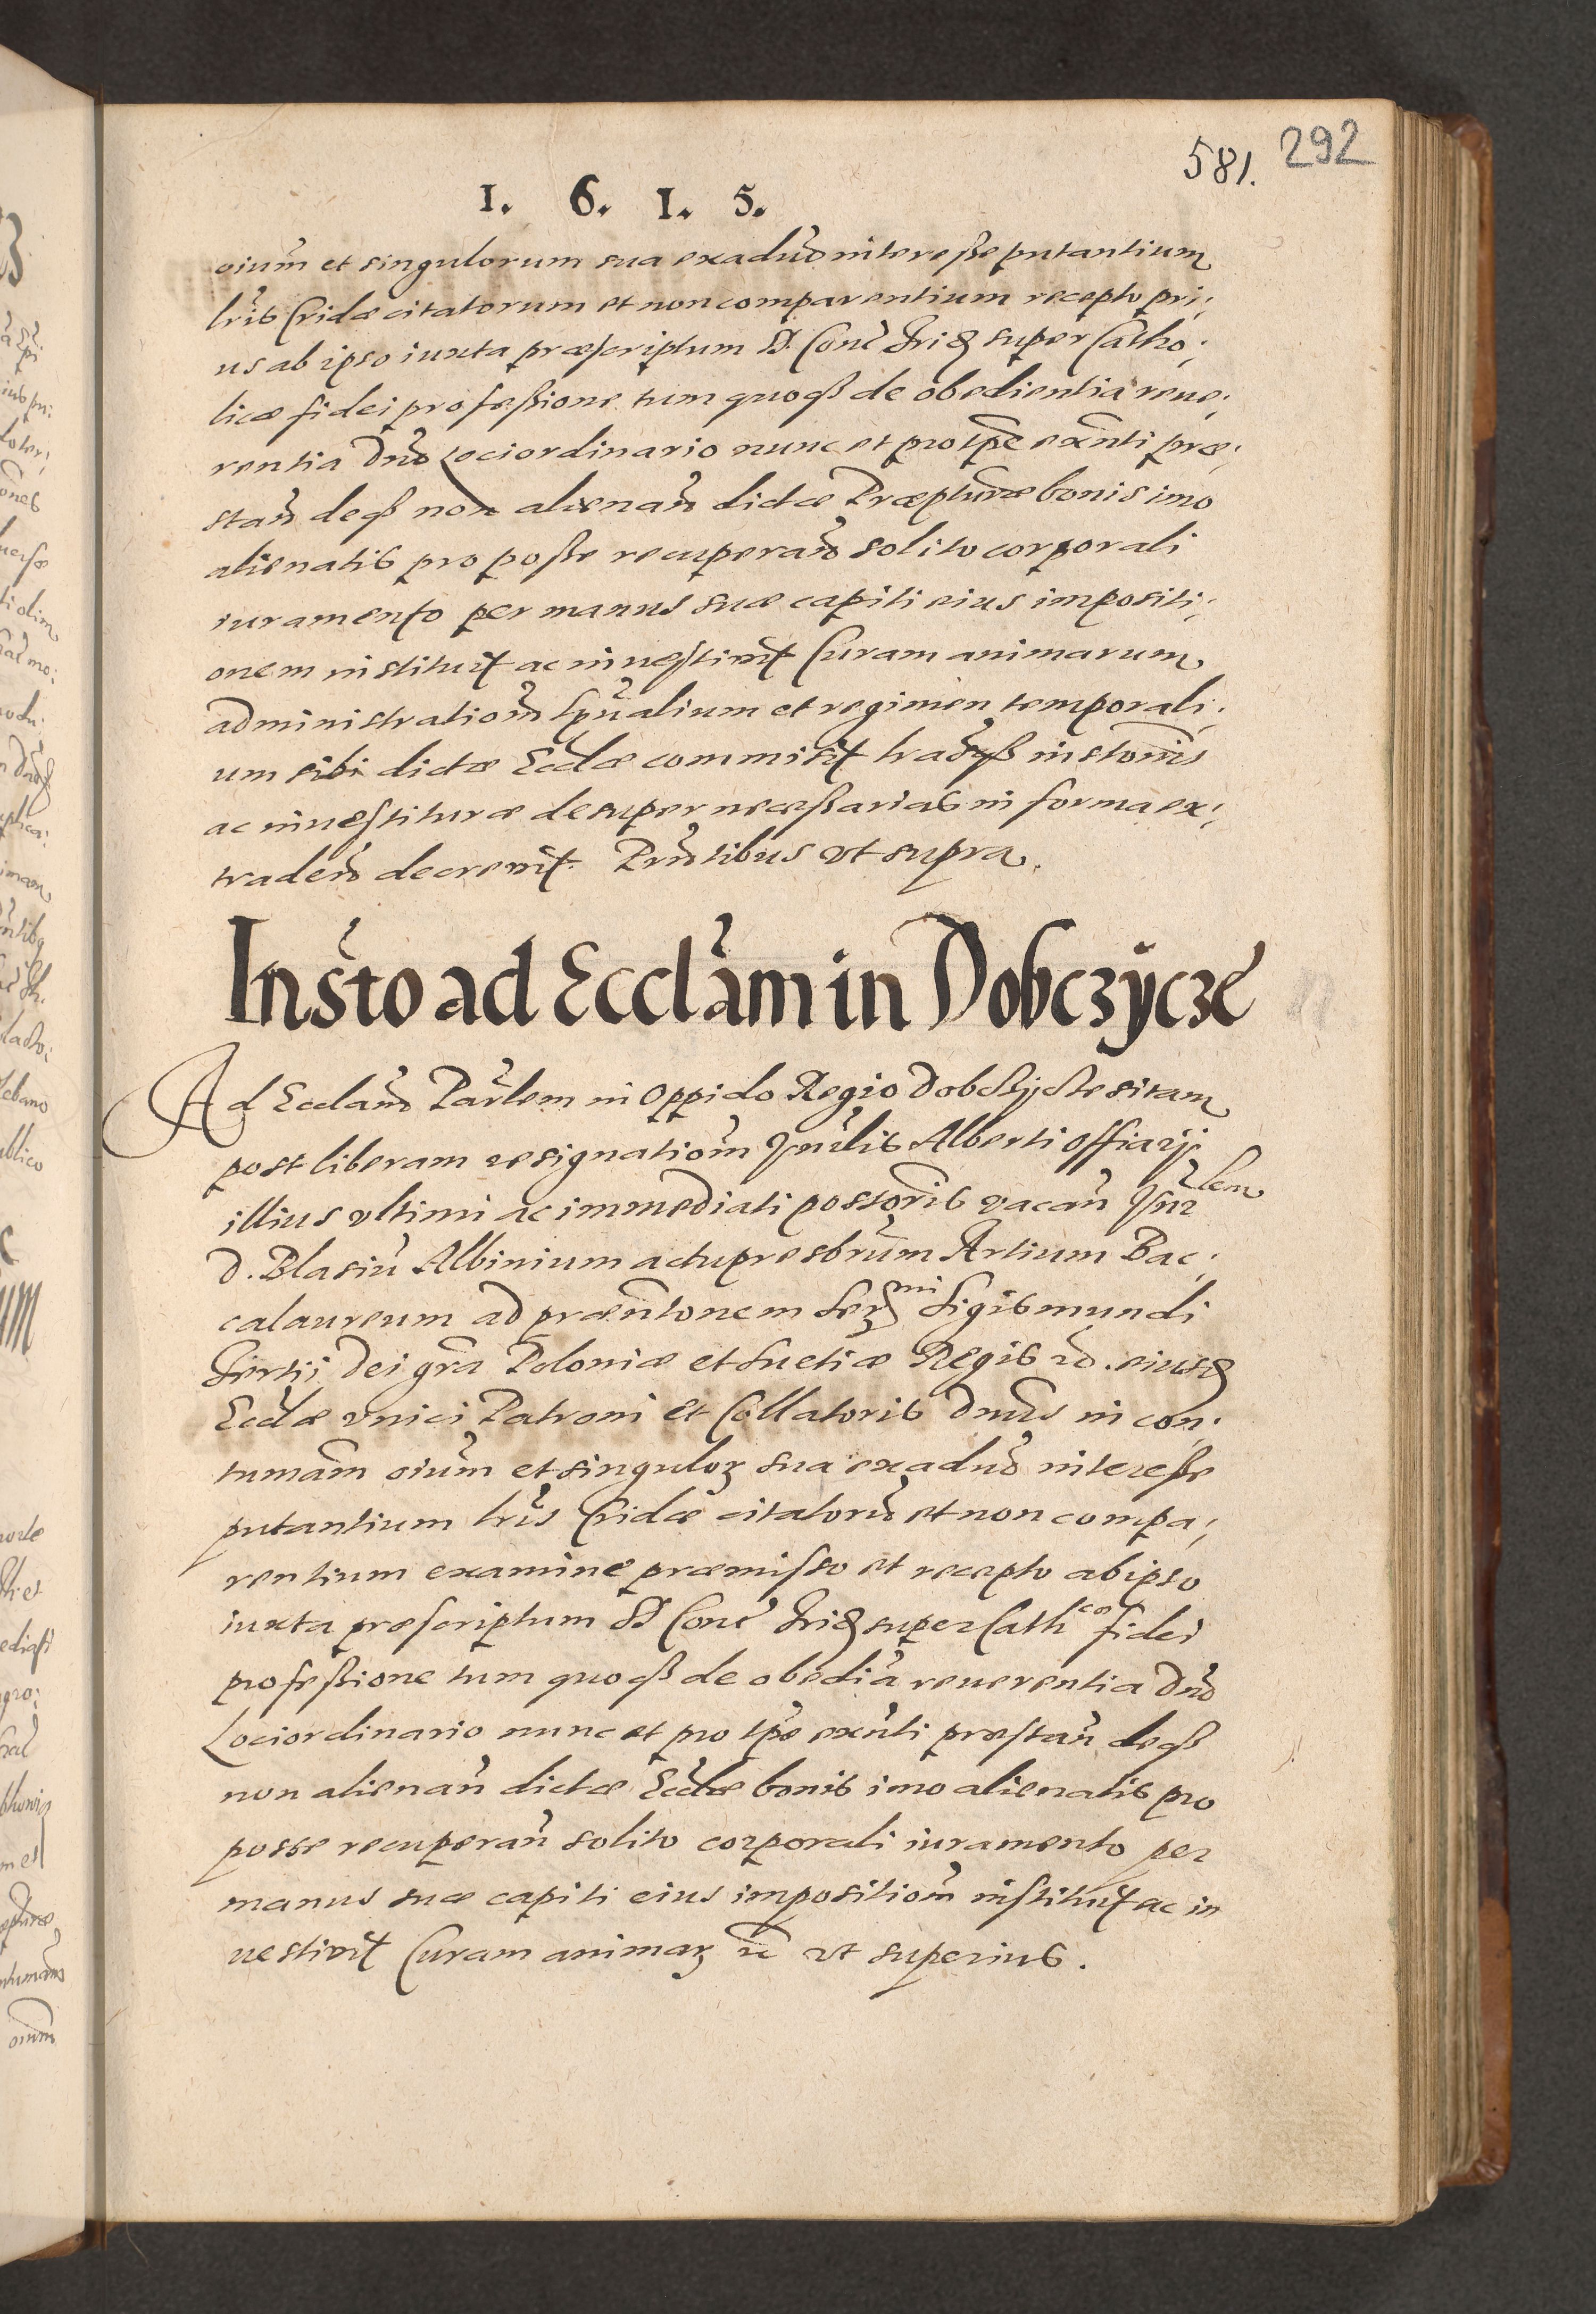 581. 292
1. 6. 1. 5.
oium et singulorum sua exaduo interesse putantium
lris Cridæ citatorum et non comparentium recepto pri:
us ab ipso iuxta præscriptum S. Conc Trid super Catho:
licæ fidei professione tum quoqß de obedientia reue:
rentia dno Lociordinario nunc et pro tpe exnti præ:
stan deqß non alienan dictæ Præpturæ bonis imo
alienatis pro posse recuperan solito corporali
iuramento per manus suæ capiti eius impositi:
onem instituit ac inuestiuit Curam animarum
administratiom spualium et regimen temporali:
um sibi dictæ Ecclæ commisit insto̅nis
ac inuestituræ desuper necessarias in forma ex:
traden decreuit. Pruntibus vt supra.
Insto ad Ecclam in Dobczycze
Ad Ecclam Parlem in Oppido Regio Dobczycze sitam
post liberam resignatiom Hnrlis Alberti Officiarij
illius vltimi ac immediati possoris vacan Hnrlem
D. Blasiu Albinium actu presbrum Artium Bac:
calaureum ad præntonem Sermi Sigismundi
Tertij Dei gra Poloniæ et Suetiæ Regis eiusd
Ecclæ vnici Patroni et Collatoris Dnus in con:
tumam oium et singulor sua exaduo interesse
putantium lris Cridæ citatoru et non compa:
rentium examine præmisso et recepto ab ipso
iuxta præscriptum S Conc Trid super Cathcæ fidei
professione tum quoqß de obedia reuerentia dno
Lociordinario nunc et pro tpe exnti præstan deqß
non alienan dictæ Ecclæ bonis imo alienatis pro
posse recuperan solito corporali iuramento per
manus suæ capiti eius impositiom instituit ac in
uestiuit Curam animar rc vt superius.